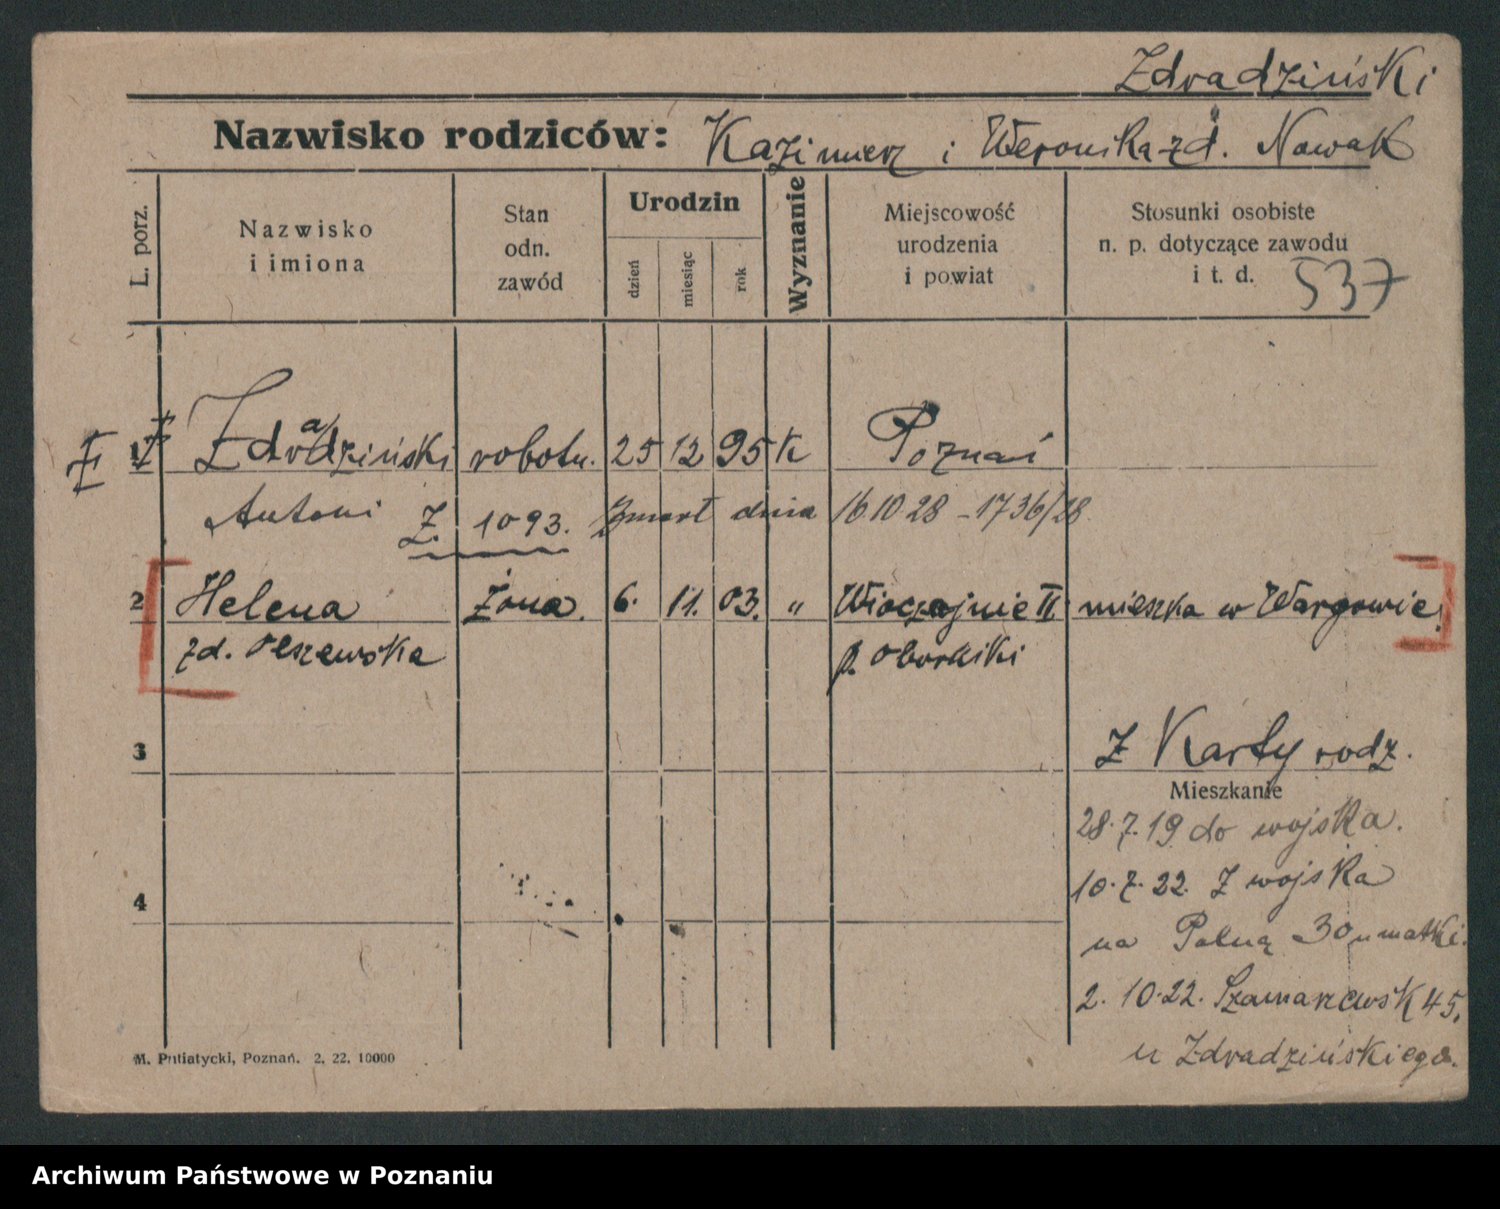 Zdradziński
Nazwisko rodziców: Kazimierz i Weronika zd. Nowak
L. porz.
Nazwisko
i imiona
Stan
odn.
zawód
Urodzin
dzień
miesiąc
rok
Wyznanie
Miejscowość
urodzenia
i powiat
Stosunki osobiste
n. p. dotyczące zawodu
i t. d.
537
1 Zdradziński robotn. 25 12 95 k Poznań
Antoni Z. 1093. Zmarł dnia 16.10 28 - 1736/28
2 Helena żona. 6. 11. 03. " II mieszka w Wargowie
zd. Olszewska p. Obornicki
3 Z Karty rodz.
Mieszkanie
28.7.19 do wojska.
10.7.22. Z wojska
4
na Polną 30 u matki.
2.10.22. Szamarzewsk 45.
u Zdradzińskiego.
M. Putiatycki, Poznań. 2. 22. 10000
Archiwum Państwowe w Poznaniu